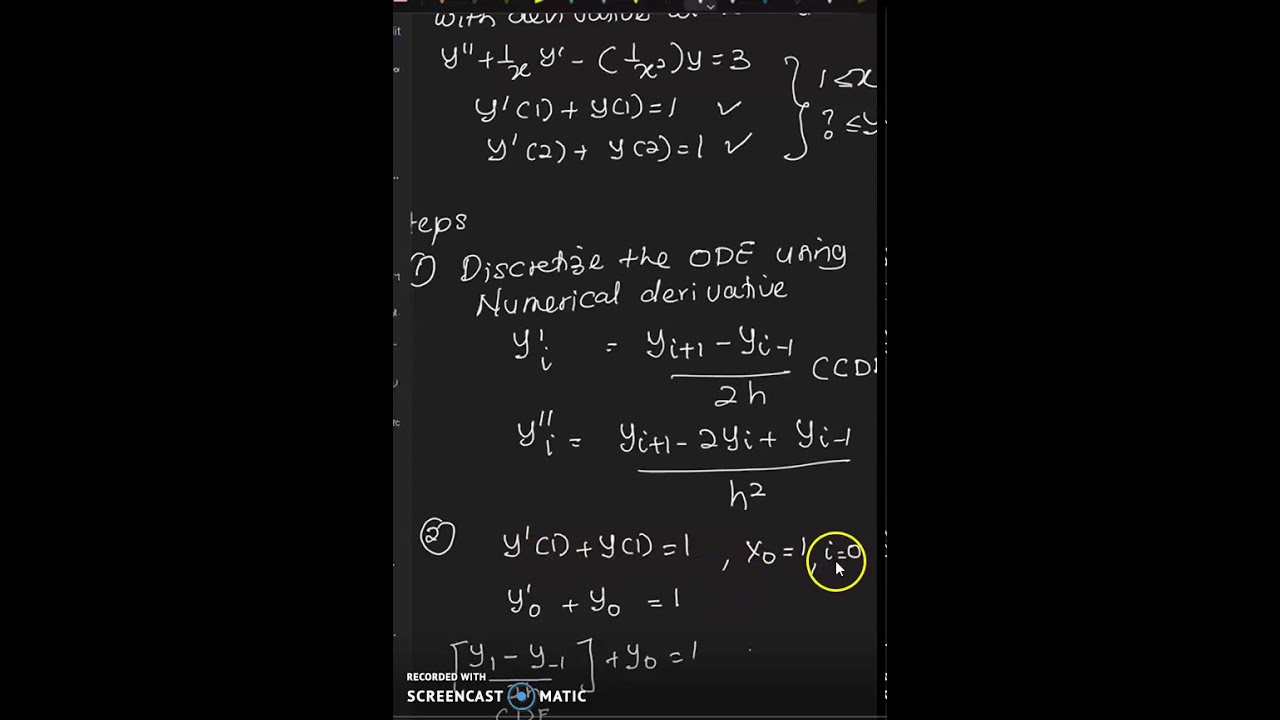 with derivative
y'' + 1/x y' - (1/x²) y = 3
1 ≤ x
y'(1) + y(1) = 1 ✓
? ≤ y
y'(2) + y(2) = 1 ✓
teps
1) Discretize the ODE using
Numerical derivative
y'i = (yi+1 - yi-1) / 2h CCD
y''i = (yi+1 - 2yi + yi-1) / h²
2 y'(1) + y(1) = 1 , x0 = 1, i=0
y'0 + y0 = 1
[y1 - y-1 / 2h] + y0 = 1
RECORDED WITH
SCREENCAST MATIC